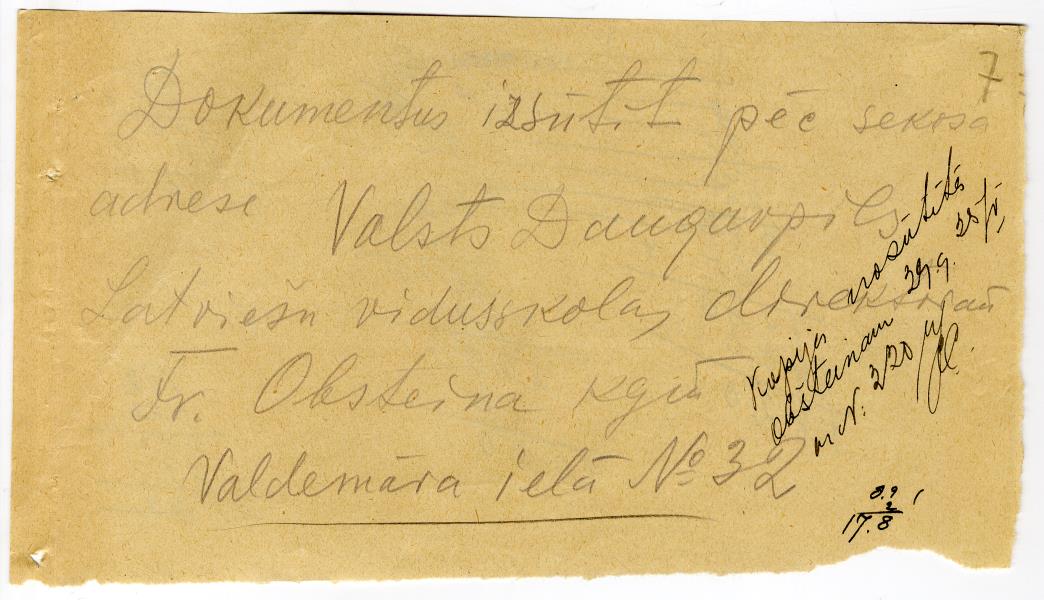 7
Dokumentus izsūtīt pēc sekosa
adrese Valsts Daugavpils
Latviešu vidusskolas direktoram
Fr. Obšteina kgm
Valdemāra ielā № 32
Kopija nosūtīta
Obšteinam 29.9. 25/V
ar N: 320
8.9
2
17.8